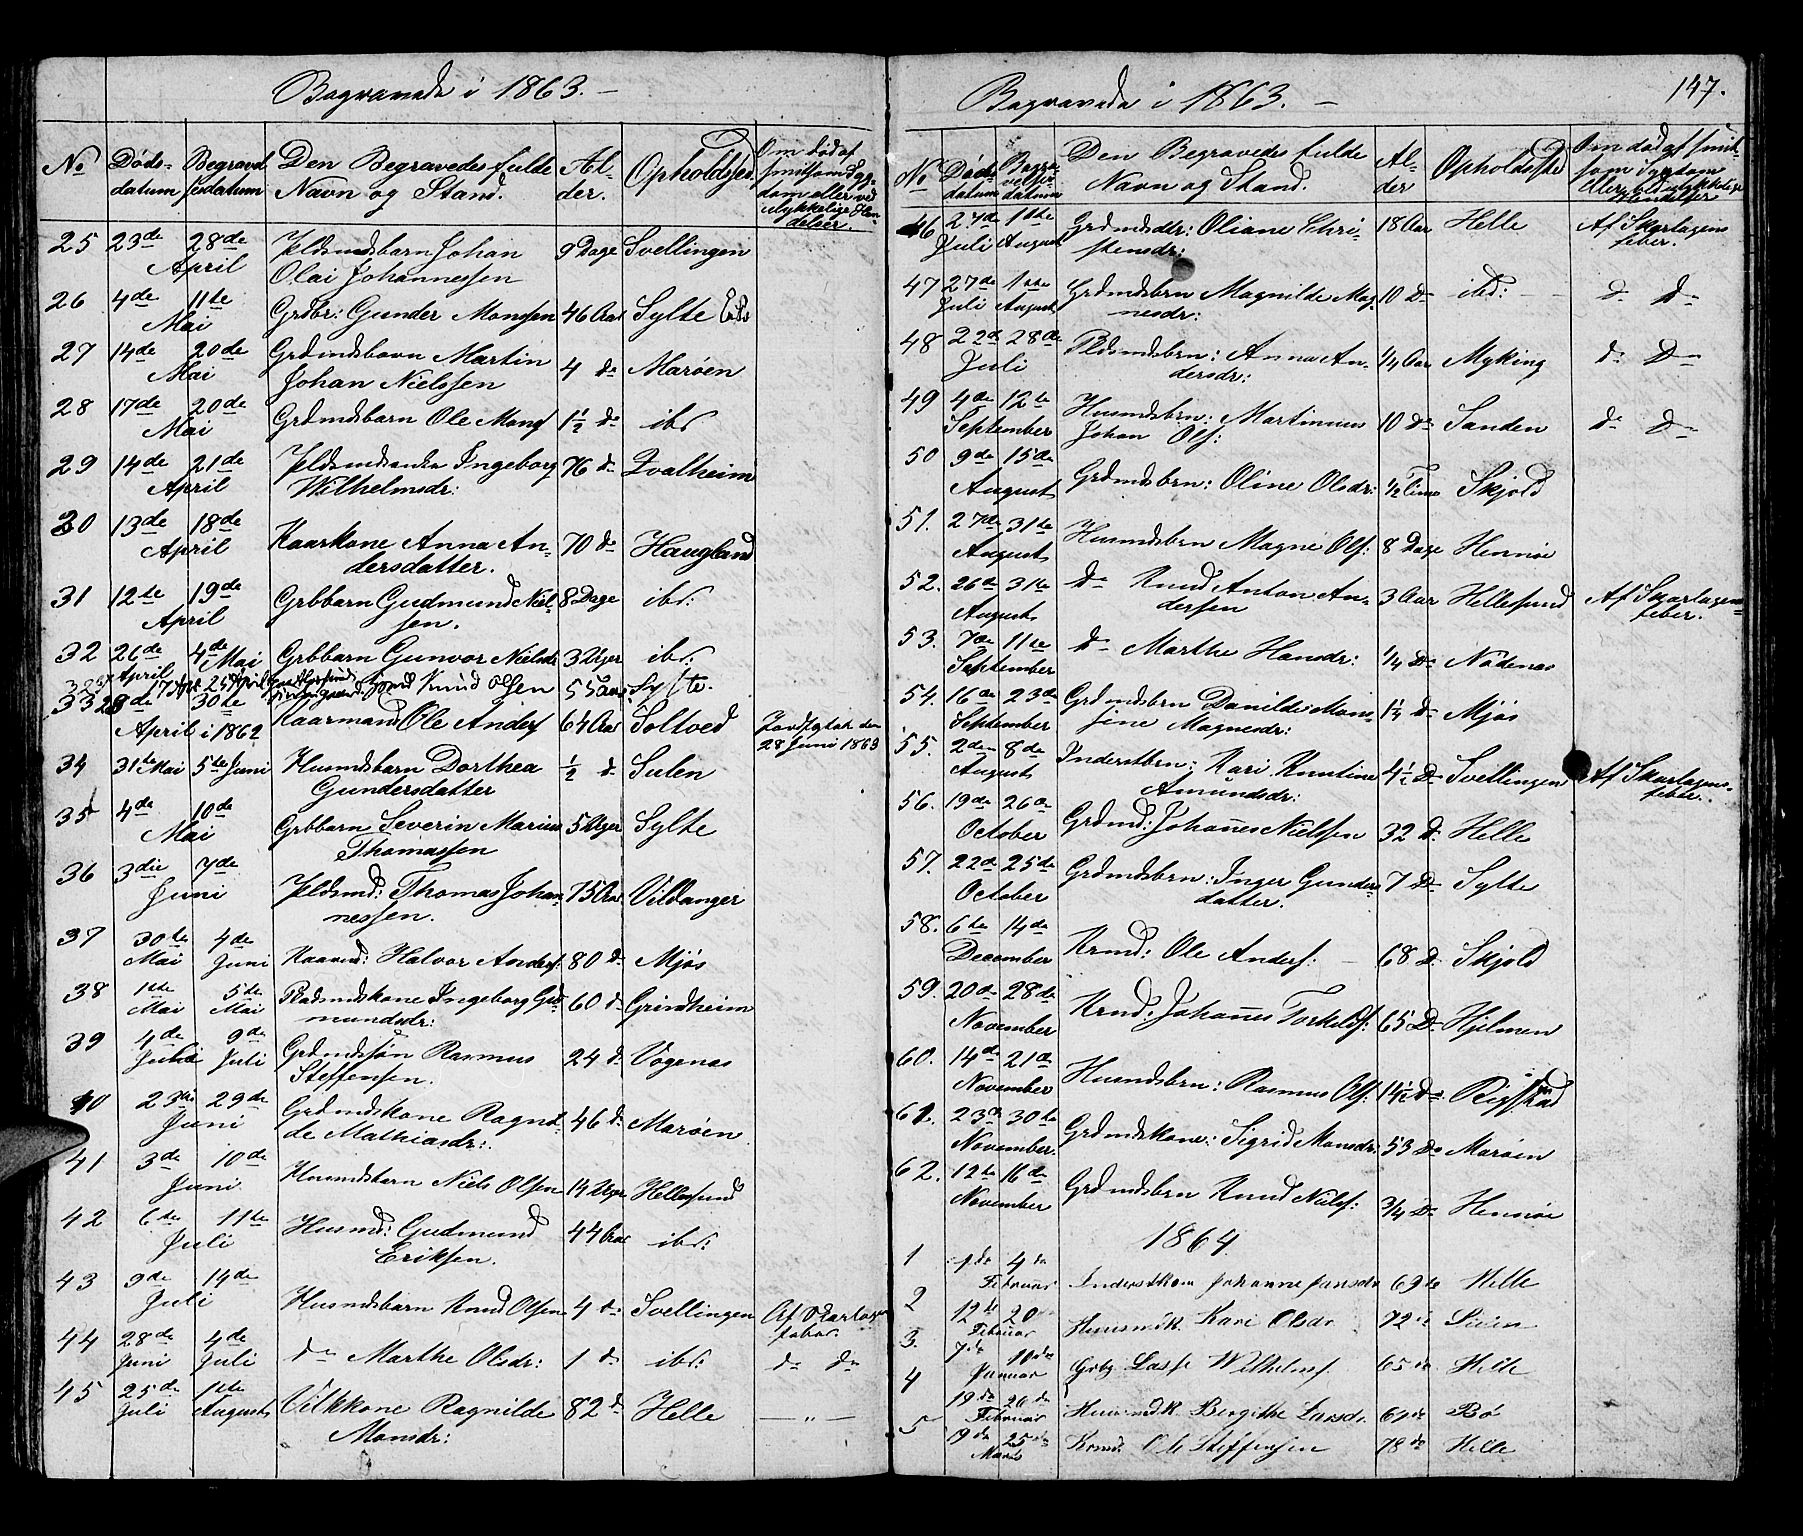 Begravede i 1863. –
No
Døds-
datum
Begravel-
sesdatum
Den Begravedes fulde
Navn og Stand.
Al-
der.
Opholdssted
Om død af
smitsom Syg-
dom eller ved
ulykkelige Hæn-
delser.
25 23de 28de April Johan Olai Johannessen 9 Dage Svellingen
26 4de 11te Mai Grdbr: Gunder Monssen 46 Aar Sylte
27 14de 20de Mai Grdmdsbarn Martin Johan Nielssen 4 do Marøen
28 17de 20de Mai Grdmdsbarn Ole Mons 1½ do ibd
29 14de 21de April Ingeborg Wilhelmsdr: 76 do Qvalheim
30 13de 18de April Kaarkone Anna Andersdatter. 70 do Haugland
31 12te 19de April Grbbarn Gudmund Nielsen. 8 Dage ibd:
32 26de April 4de Mai Grbbarn Gunvor Nielsdr 3 Uger ibd:
17 Apr. 25 April Knud Olsen 55 Aar Sylte.
33 28de 30te April i 1862 Kaarmand Ole Anders 64 Aar Soltved Jordfæstet den 28 Juni 1863
34 31te Mai 5te Juni Husmdsbarn Dorthea Gundersdatter ½ do Sulen
35 4de 10de Mai Grbbarn Severin Marius Thomassen 5 Uger Sylte
36 3die 7de Juni Thomas Johannessen. 75 Aar Vildanger
37 30te Mai 4de Juni Kaarmd: Halvor Anders: 80 do Mjøs
38 1ste Mai 5te Mai Pladsmdskone Ingeborg Gudmundsdr: 60 do Grindheim
39 4de 9de Juli Grdmdssøn Rasmus Steffensen. 24 do Vøgenæs
40 23de 29de Juni Grdmdskone Ragnilde Mathiasdr: 46 do Marøen
41 3de 10de Juni Husmdsbarn Niels Olsen 14 Uger Hellesund
42 6te 11te Juli Husmd: Gudmund Eriksen. 44 Aar ibd:
43 9de 14de Juli Husmdsbarn Knud Olsen 4 do Svellingen Af Skarlagensfeber.
44 28de Juni 4de Juli do Marthe Olsdr: 1 do ibd: do do
45 25de Juli 1ste August Vilkkone Ragnilde Monsdr: 82 do Helle — " —
Begravede i 1863. –
147.
No
Døds-
datum
Begra-
velses-
datum
Den Begravedes fulde
Navn og Stand.
Al-
der
Opholdssted
Om død af smit-
som Sygdom
eller ved ulykkelige
Hændelser
46 27de Juli 1ste August Grdmdsdtr: Oliane Christensdr: 18 Aar Helle Af Skarlagensfeber.
47 27de Juli 1ste August Grdmdsbrn Magnilde Magnesdr: 10 do ibd: do do
48 22de 28de Juli Pldsmdsbrn: Anna Andersdr: ¼ Aar Myking do do
49 4de 12te September Husmdsbrn: Martinius Johan Ols: 10 do Sanden do do
50 9de 15de August Grdmdsbrn: Oline Olsdr: ½ Time Skjold
51. 27de 31te August Husmdsbrn Magne Ols: 8 Dage Hennøe
52. 26de 31te August do Knud Anton Andersen 3 Aar Hellesund Af Skarlagensfeber.
53. 7de 11te September do Marthe Hansdr: ¼ do Nødenæs
54. 16de 23de September Grdmdsbrn Danilde Monsine Magnesdr: 1¼ do Mjøs
55. 2den 8de August Inderstbrn: Kari Knutine Amundsdr: 4½ do Svellingen Af Skarlagensfeber.
56. 19de 26de October Grdmd: Johanes Nielsen 32 do Helle
57. 22de 25de October Grdmdsbrn: Inger Gundersdatter. 7 do Sylte
58. 6te 14de December Krmd: Ole Anders: 68 do Skjold
59. 20de 28de November Krmd: Johanes Torkelds: 65 do Hjelmen
60. 14de 21de November Husmdsbrn: Rasmus Ols: 14½ do Rigstad
61. 23de 30te November. Grdmdskone: Sigrid Monsdr: 53 do Marøen
62. 12te 16de November Grdmdsbrn Knud Niels: ¾ do Hennøe
1864
1 1de 4de Februar Inderstkone Johanne Jansdr 69 do Helle
2 12te 20 Februar Husmdk. Kari Olsdr 72 do
3. 7de 10de Januar Lasse Wilhelms. 65 do Helle
4 19de 26de Februar Husmdk. Bergithe Larsdr. do Bø
5 19de 25de Marts Krmd. Ole Steffensen 78 do Helle